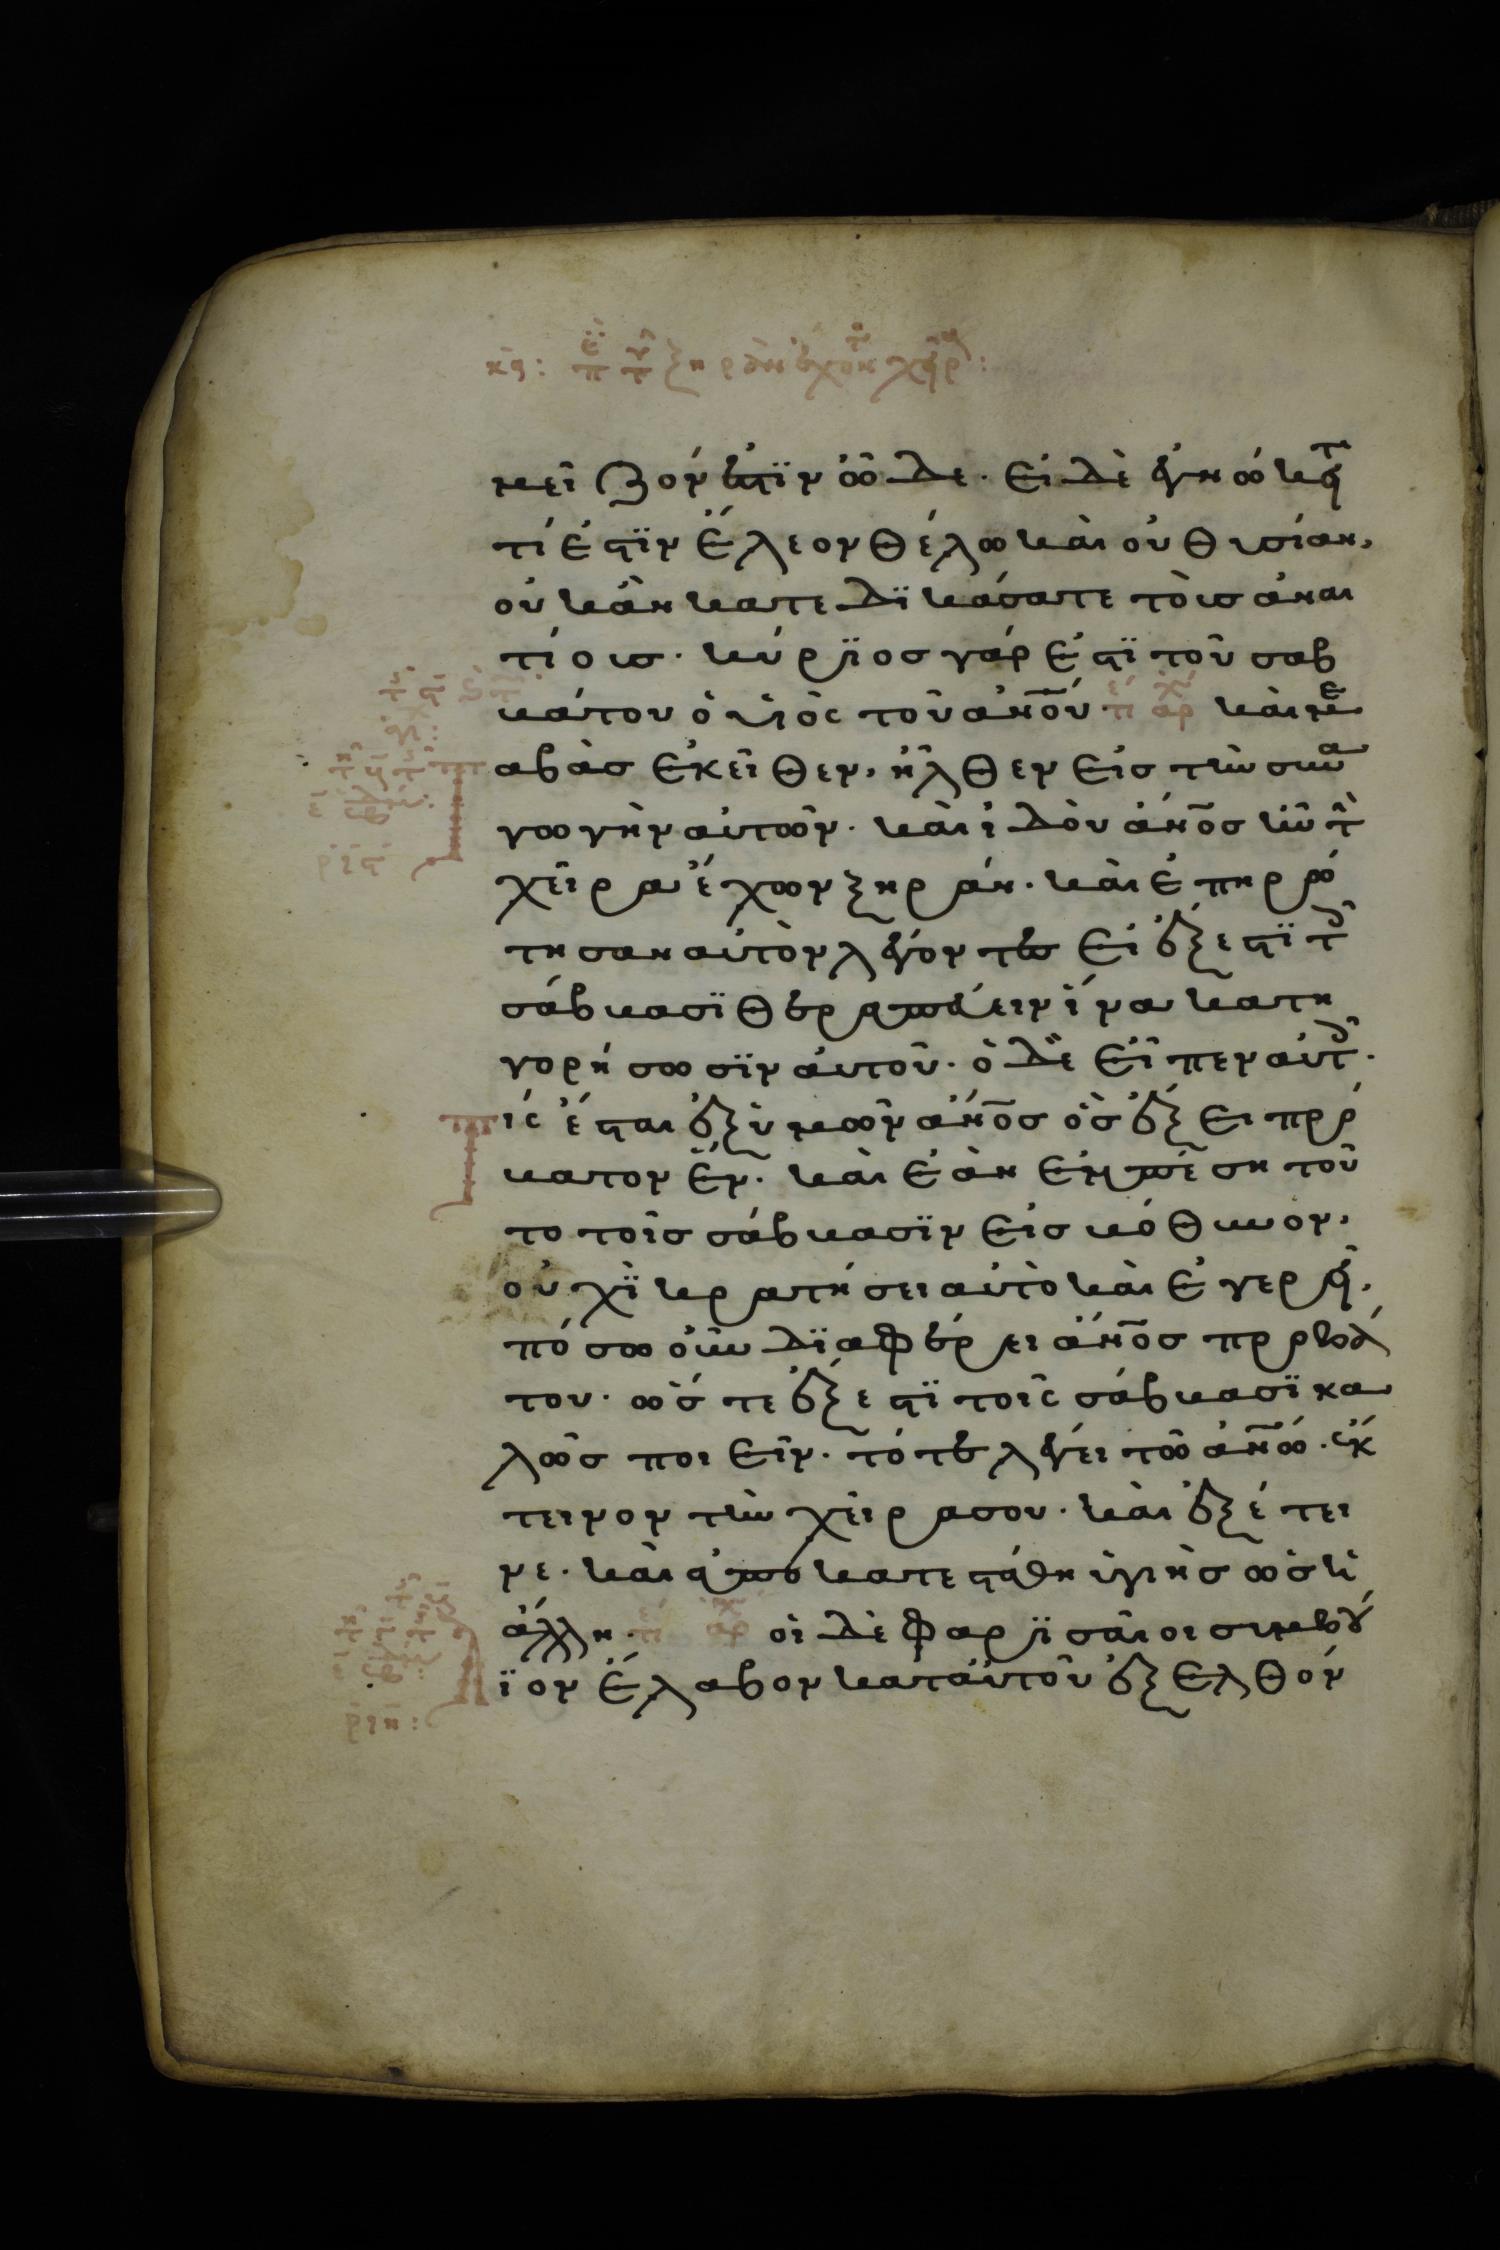 μεῖζον ἐστὶν ὧδε· εἰ δὲ ἐγνώκειτε
τί ἐστὶν ἔλεον θέλω καὶ οὐ θυσίαν,
οὐκ ἂν κατεδικάσατε τοὺς ἀναι
τίους· κύριος γάρ ἐστι τοῦ σαβ
βάτου ὁ υἱὸς τοῦ ἀνο̅υ καὶ μετ
αβὰσ ἐκεῖθεν, ἦλθεν εἰσ τὴν συνα
γωγὴν αὐτῶν· καὶ ἰδοὺ ἄνο̅σ ἦν τὴν
χεῖρα ἔχων ξηράν· καὶ ἐπηρώ
τησαν αὐτὸν λέγοντεσ εἰ ἔξεστι τοῖς
σάββασι θεραπεύειν ἵνα κατη
γορήσωσιν αὐτοῦ· ὁ δὲ εἶπεν αὐτοῖς·
τίς ἔσται ἐξ ὑμῶν ἄνο̅σ ὃσ ἕξει πρό
βατον ἕν· καὶ ἐὰν ἐμπέση τοῦ
το τοῖσ σάββασιν εἰσ βόθυνον,
οὐχὶ κρατήσει αὐτὸ καὶ ἐγερεῖ,
πόσω οὖν διαφέρει ἄνο̅σ προβά
του· ὥστε ἔξεστι τοῖς σάββασι κα
λῶσ ποιεῖν· τότε λέγει τῶ ἀνω̅· ἔκ
τεινον τὴν χεῖρα σου· καὶ ἐξέτει
νε· καὶ ἀποκατεστάθη ὑγιὴσ ὡσ ἡ
ἄλλη· οἱ δὲ φαρισαῖοι συμβούλ
ιον ἔλαβον κατ αὐτοῦ ἐξελθόν